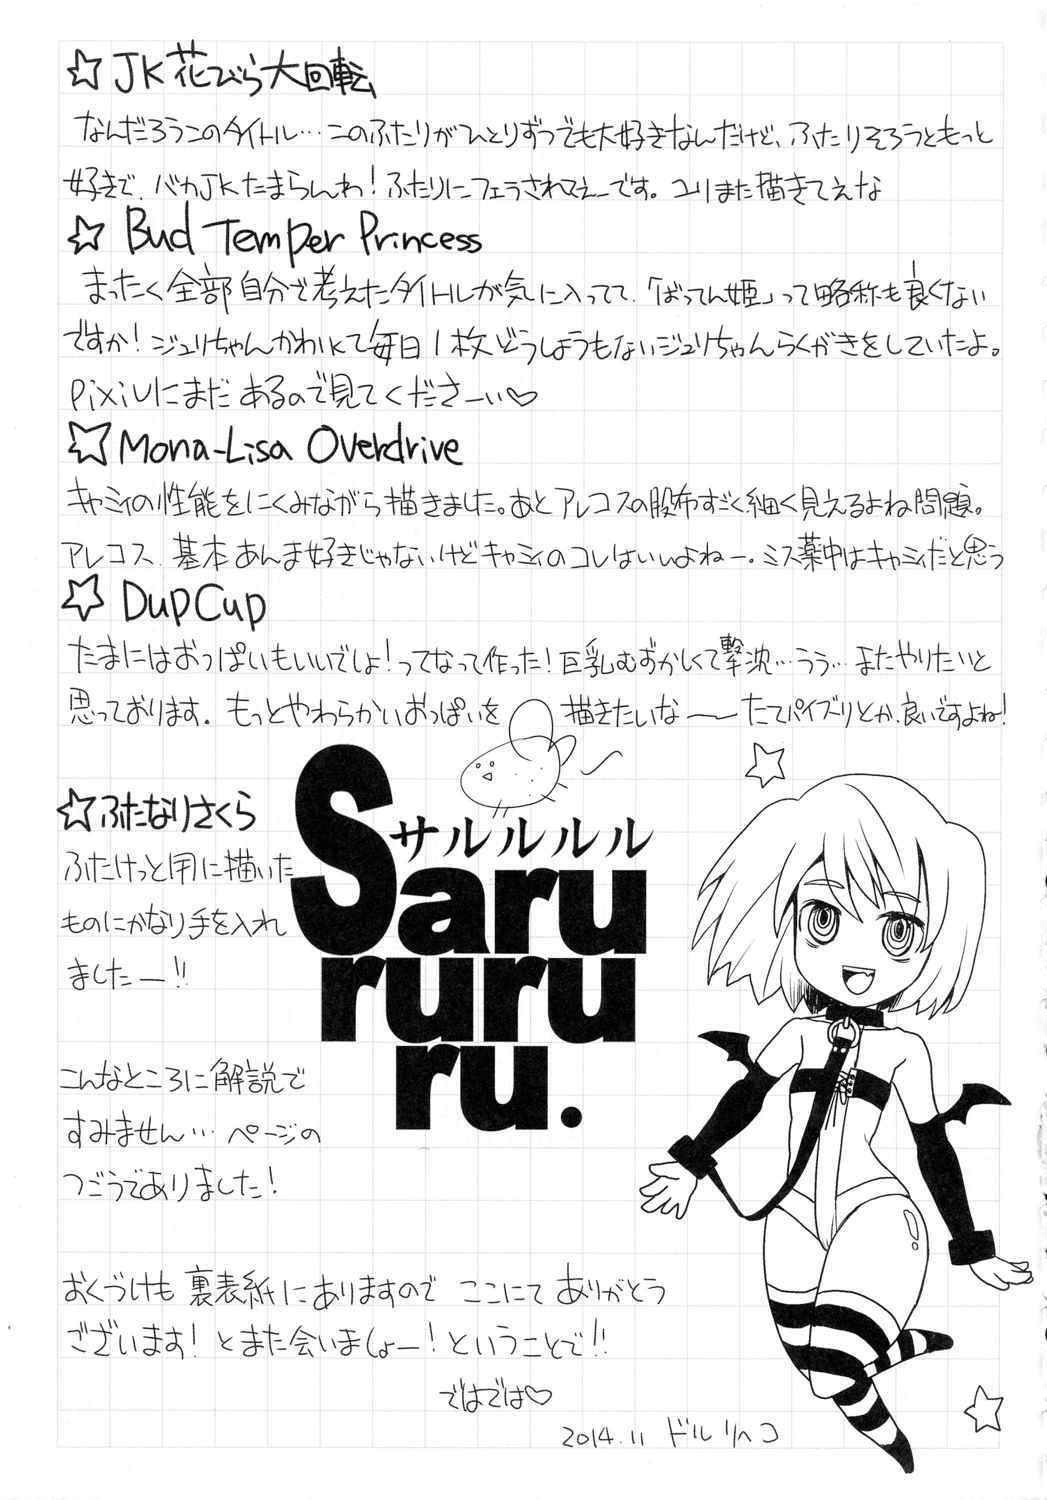 ☆ JK花びら大回転
なんだろうこのタイトル…このふたりがひとりずつでも大好きなんだけど、ふたりそろうともっと
好きで、バカJKたまらんわ!ふたりにフェラされてえーです。ユリまた描きてえな
☆ Bud Temper Princess
まったく全部自分で考えたタイトルが気に入ってて、「ばってん姫」って略称も良くない
ですか!ジュリちゃんかわいくて毎日1枚どうしようもないジュリちゃんらくがきをしていたよ。
pixivにまだあるので見てくださーい♡
☆ Mona-Lisa Overdrive
キャミィの性能をにくみながら描きました。あとアレコスの股布すごく細く見えるよね問題。
アレコス、基本あんま好きじゃないけどキャミィのコレはいいよねー。ミス薬中はキャミィだと思う
☆ DupCup
たまにはおっぱいもいいでしょ!ってなって作った!巨乳むずかしくて撃沈…うう…またやりたいと
思っております。もっとやわらかいおっぱいを描きたいな〜たてパイズリとか、良いですよね!
☆ふたなりさくら
ふたけっと用に描いた
ものにかなり手を入れ
ましたー!!
サルルルル
Saru
ruru
ru.
こんなところに解説で
すみません…ページの
つごうでありました!
おくづけも裏表紙にありますので ここにて ありがとう
ございます!とまた会いましょー!ということで!!
ではでは♡
2014.11 ドルリヘコ